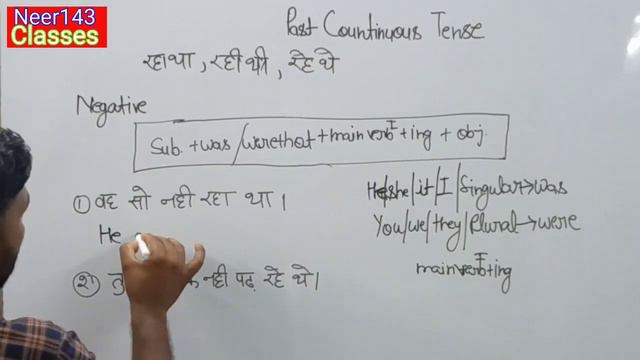 Neer143
Classes
Past Countinuous Tense
रहा था, रही थी, रहे थे
Negative
Sub. + was/were + not + main verb I + ing + obj.
① वह सो नही रहा था।
He/she/it/I/Singular → was
He
You/we/they/Plural → were
② नही पढ़ रहे थे।
main verb I + ing